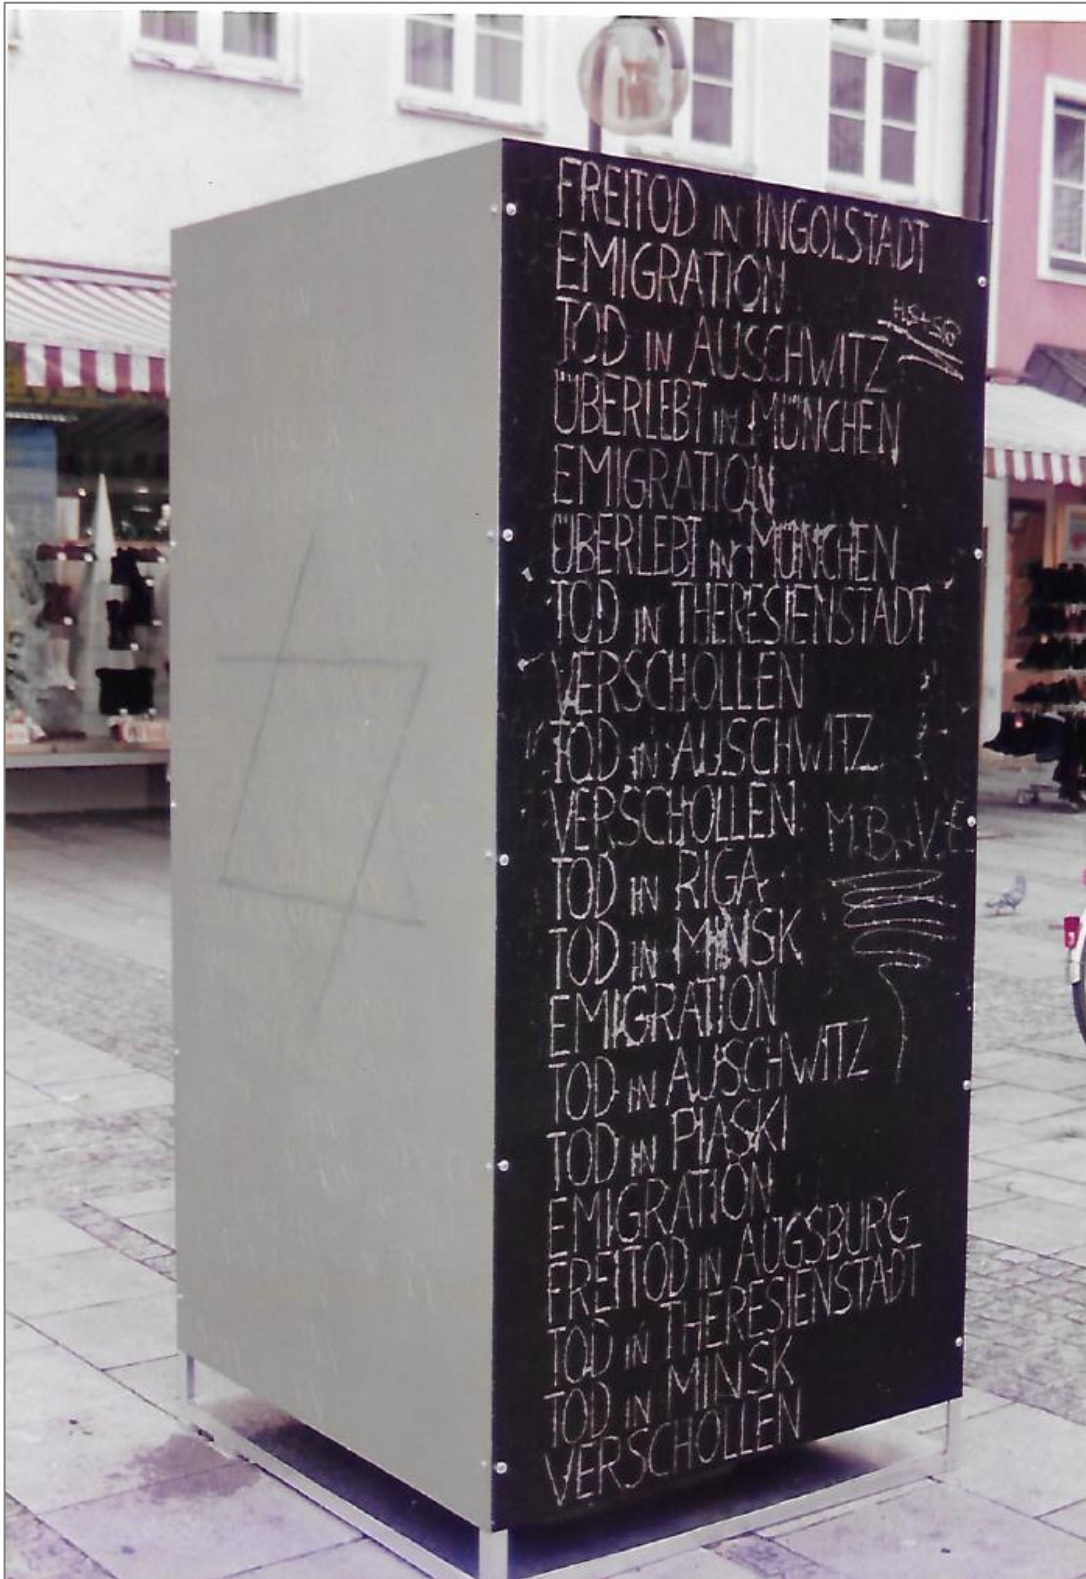 FREITOD IN INGOLSTADT
EMIGRATION
TOD IN AUSCHWITZ
ÜBERLEBT IN MÜNCHEN
EMIGRATION
ÜBERLEBT IN MÜNCHEN
TOD IN THERESIENSTADT
VERSCHOLLEN
TOD IN AUSCHWITZ
VERSCHOLLEN
M.B.+V.E.
TOD IN RIGA
TOD IN MINSK
EMIGRATION
TOD IN AUSCHWITZ
TOD IN PIASKI
EMIGRATION
FREITOD IN AUGSBURG
TOD IN THERESIENSTADT
TOD IN MINSK
VERSCHOLLEN